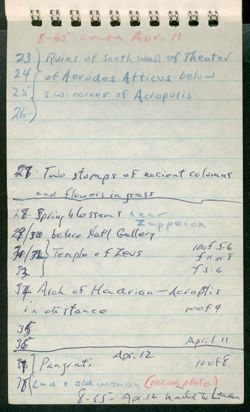 8-65 contd Apr. 11
23 Ruins of south wall of Theater
24 of Aerodes Atticus below
25 s.w. corner of Acropolis
26
27 Two stumps of ancient columns
and flowers in grass
28 Spring blossoms near
Zappeion
29/30 before Nat'l Gallery
31/32 Temple of Zeus 10 of 5.6
f 11 or 8
33 f 5.6
34 Arch of Hadrian - Acropolis
in distance
35
36 April 11
37 Pangrati Apr. 12 10 of 8
38 Lad & old woman (incomplete)
8-65 - Apr. 12